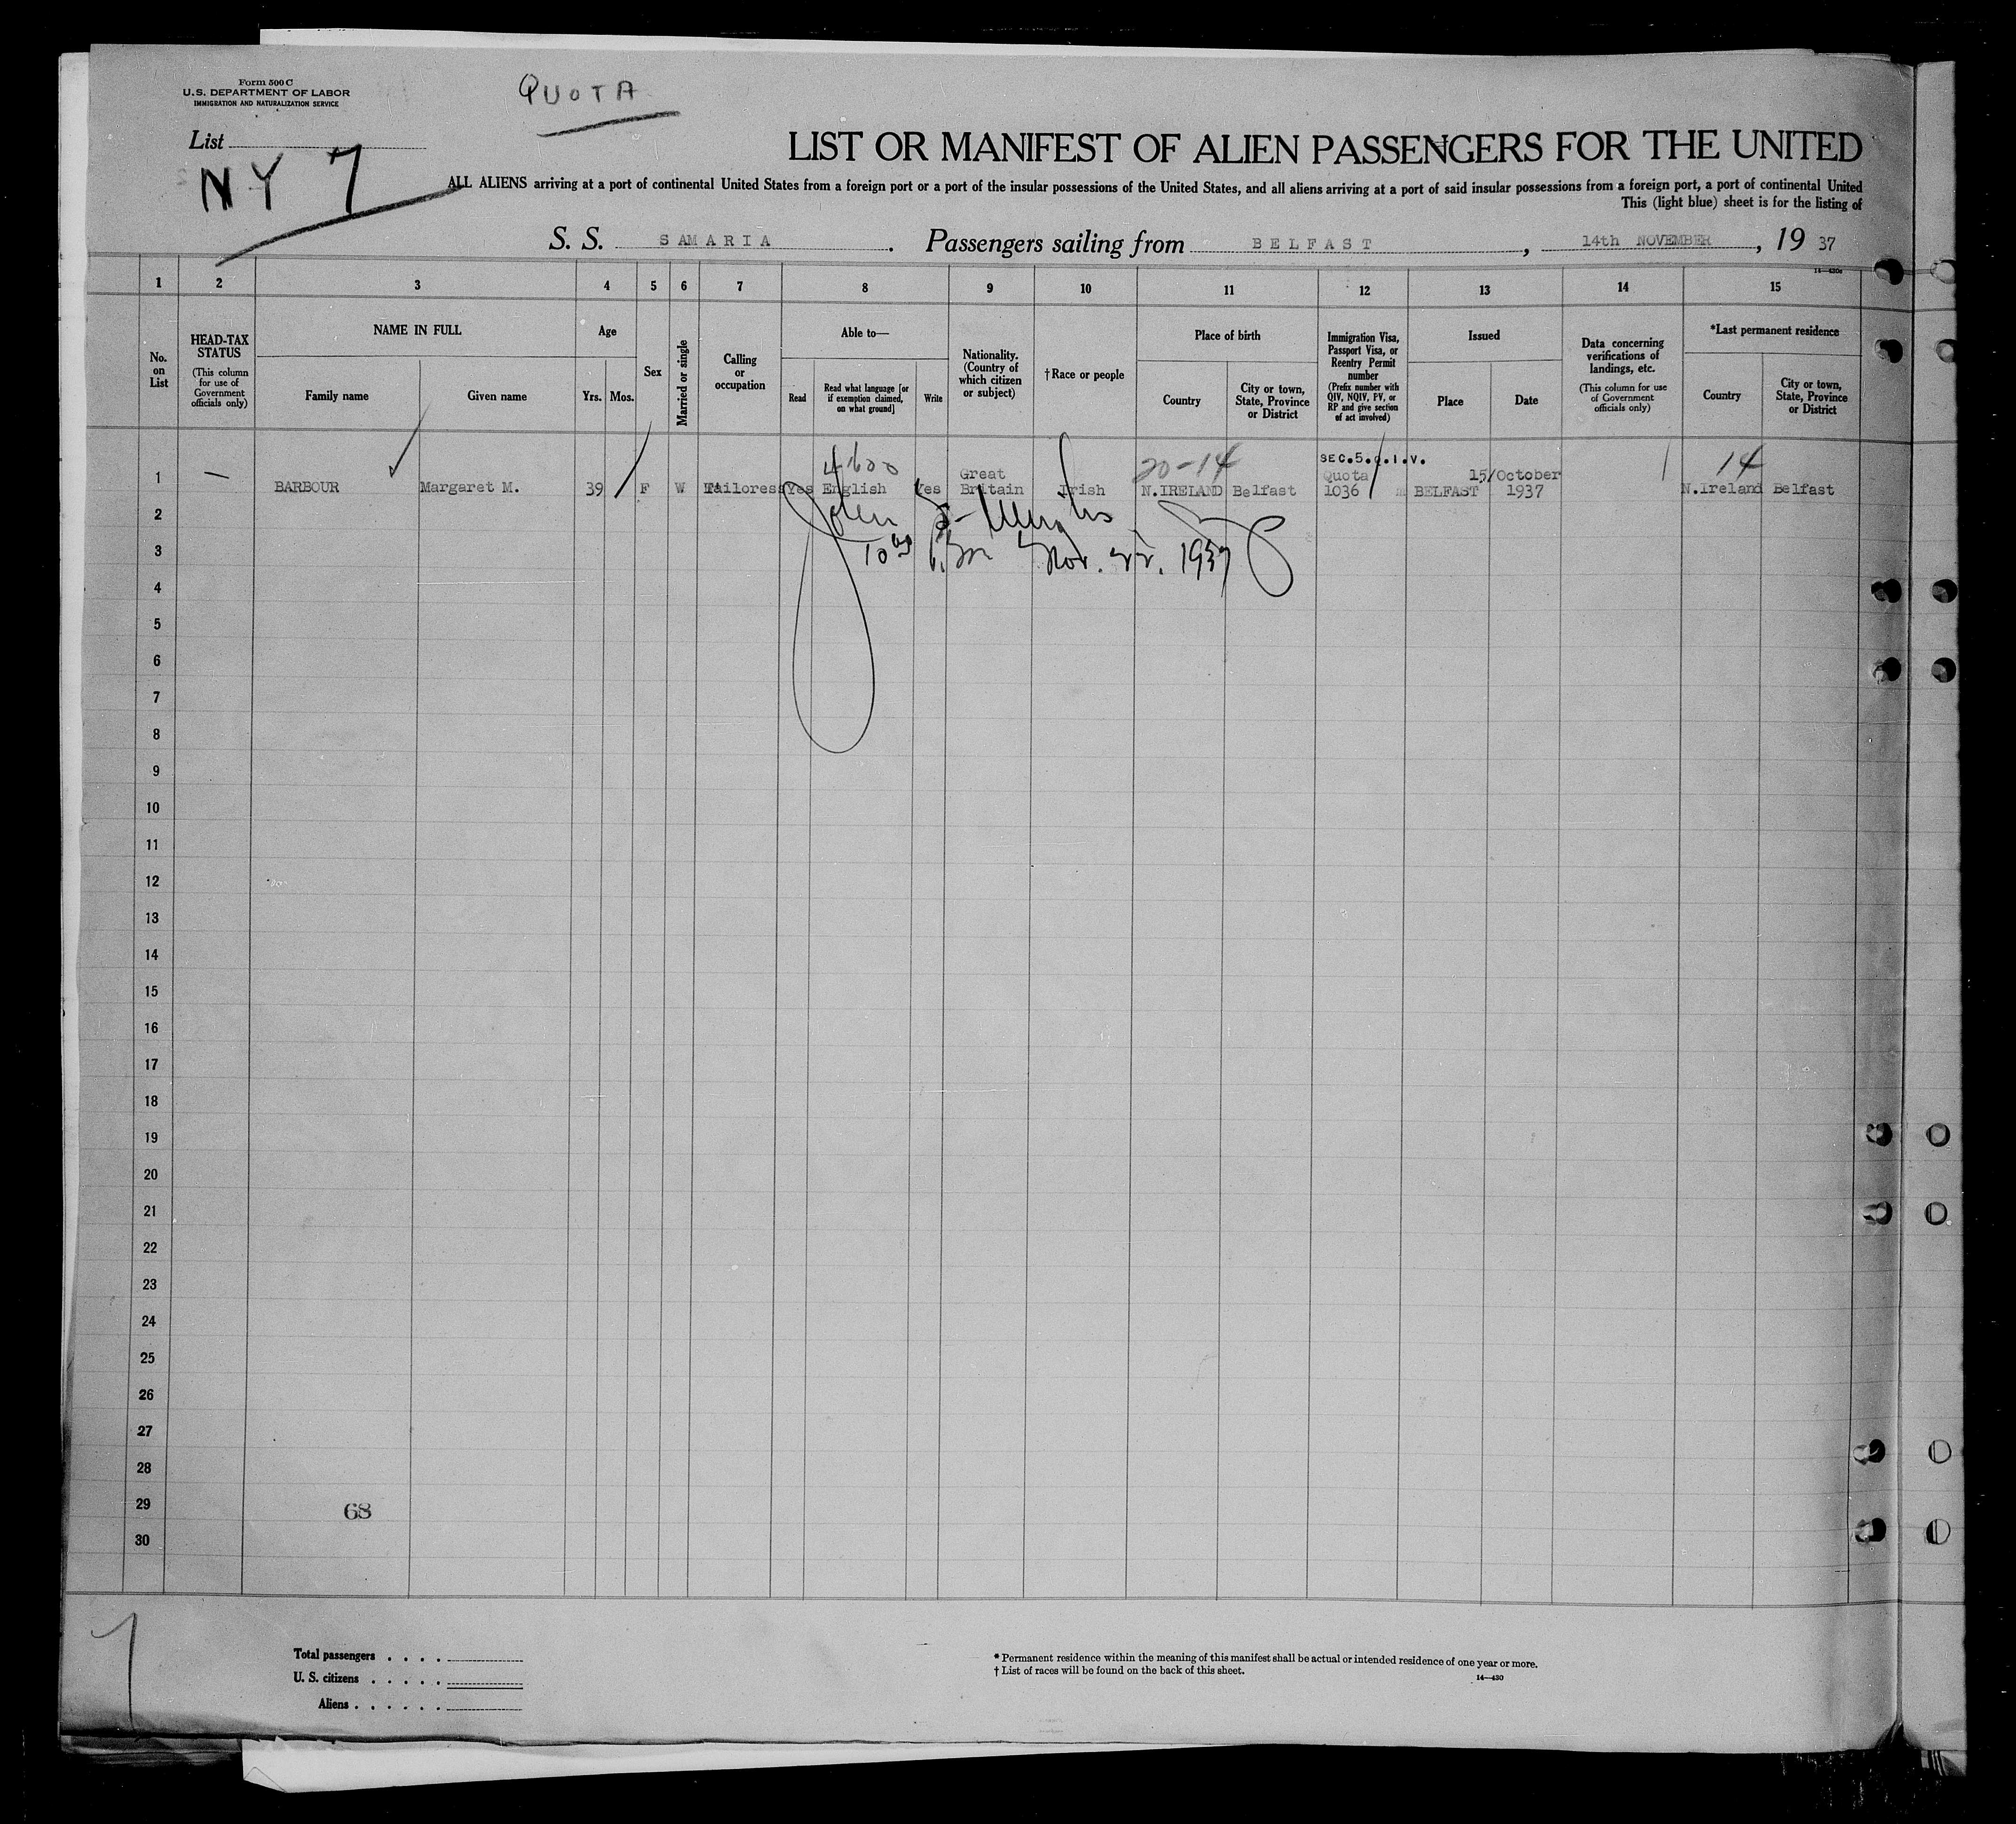 Form 500 C
U.S. DEPARTMENT OF LABOR
IMMIGRATION AND NATURALIZATION SERVICE
QUOTA
List
NY 7
LIST OR MANIFEST OF ALIEN PASSENGERS FOR THE UNITED
ALL ALIENS arriving at a port of continental United States from a foreign port or a port of the insular possessions of the United States, and all aliens arriving at a port of said insular possessions from a foreign port, a port of continental United
This (light blue) sheet is for the listing of
S. S. SAMARIA. Passengers sailing from BELFAST, 14th NOVEMBER, 19 37
1 2 3 4 5 6 7 8 9 10 11 12 13 14 15
No. on List
HEAD-TAX STATUS (This column for use of Government officials only)
NAME IN FULL
Family name Given name
Age
Yrs. Mos.
Sex
Married or single
Calling or occupation
Able to—
Read
Read what language [or if exemption claimed, on what ground]
Write
Nationality. (Country of which citizen or subject)
†Race or people
Place of birth
Country
City or town, State, Province or District
Immigration Visa, Passport Visa, or Reentry Permit number (Prefix number with QIV, NQIV, PV, or RP and give section of act involved)
Issued
Place Date
Data concerning verifications of landings, etc. (This column for use of Government officials only)
*Last permanent residence
Country
City or town, State, Province or District
4600 20-14 SEC.5.Q.I.V. 14
1 — BARBOUR Margaret M. 39 F W Tailoress Yes English Yes Great Britain Irish N.IRELAND Belfast Quota 1036 BELFAST 15/October 1937 N.Ireland Belfast
2 John
3 Nov. 22. 1937
4
5
6
7
8
9
10
11
12
13
14
15
16
17
18
19
20
21
22
23
24
25
26
27
28
29 68
30
Total passengers . . . .
U. S. citizens . . . . .
Aliens . . . . . .
* Permanent residence within the meaning of this manifest shall be actual or intended residence of one year or more.
† List of races will be found on the back of this sheet.
14—430